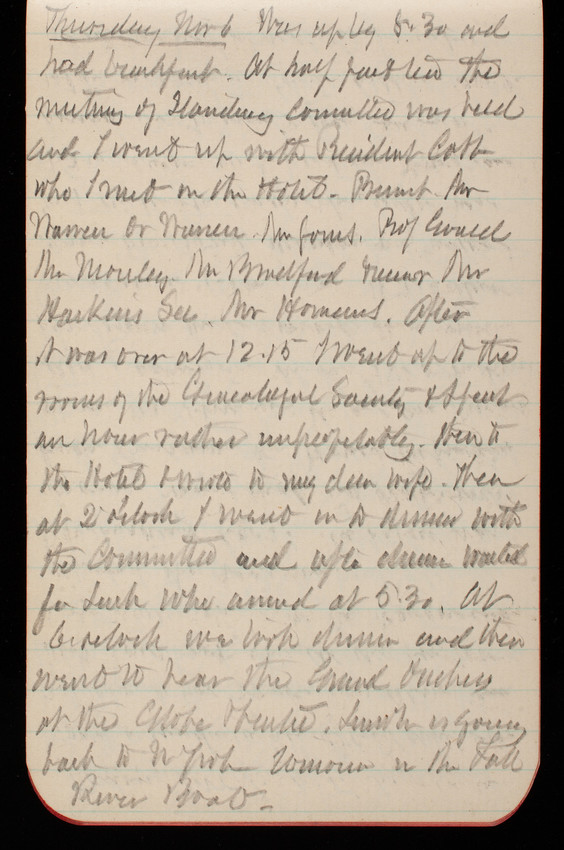 Thursday Nov 6 Was up by 5.30 and
had breakfast. At half past ten the
meeting of Standing Committee was held
and I went up with President Cobb
who I met in the Hotel. Present Mr
Warren Dr Warren Mr Jones. Prof Gould
Mr Morley Mr Bradford Mr
Harkins Sec. Mr Homans. After
it was over at 12.15 I went up to the
rooms of the Genealogical Society & spent
an hour rather unprofitably. Then to
the Hotel & wrote to my dear wife. Then
at 2 o'clock I went in to dinner with
the Committee and after dinner waited
for who arrived at 5.30. At
6 o'clock we took dinner and then
went to hear the Grand Duchess
at the Globe Theatre. is going
back to N York tomorrow in the Fall
River Boat.